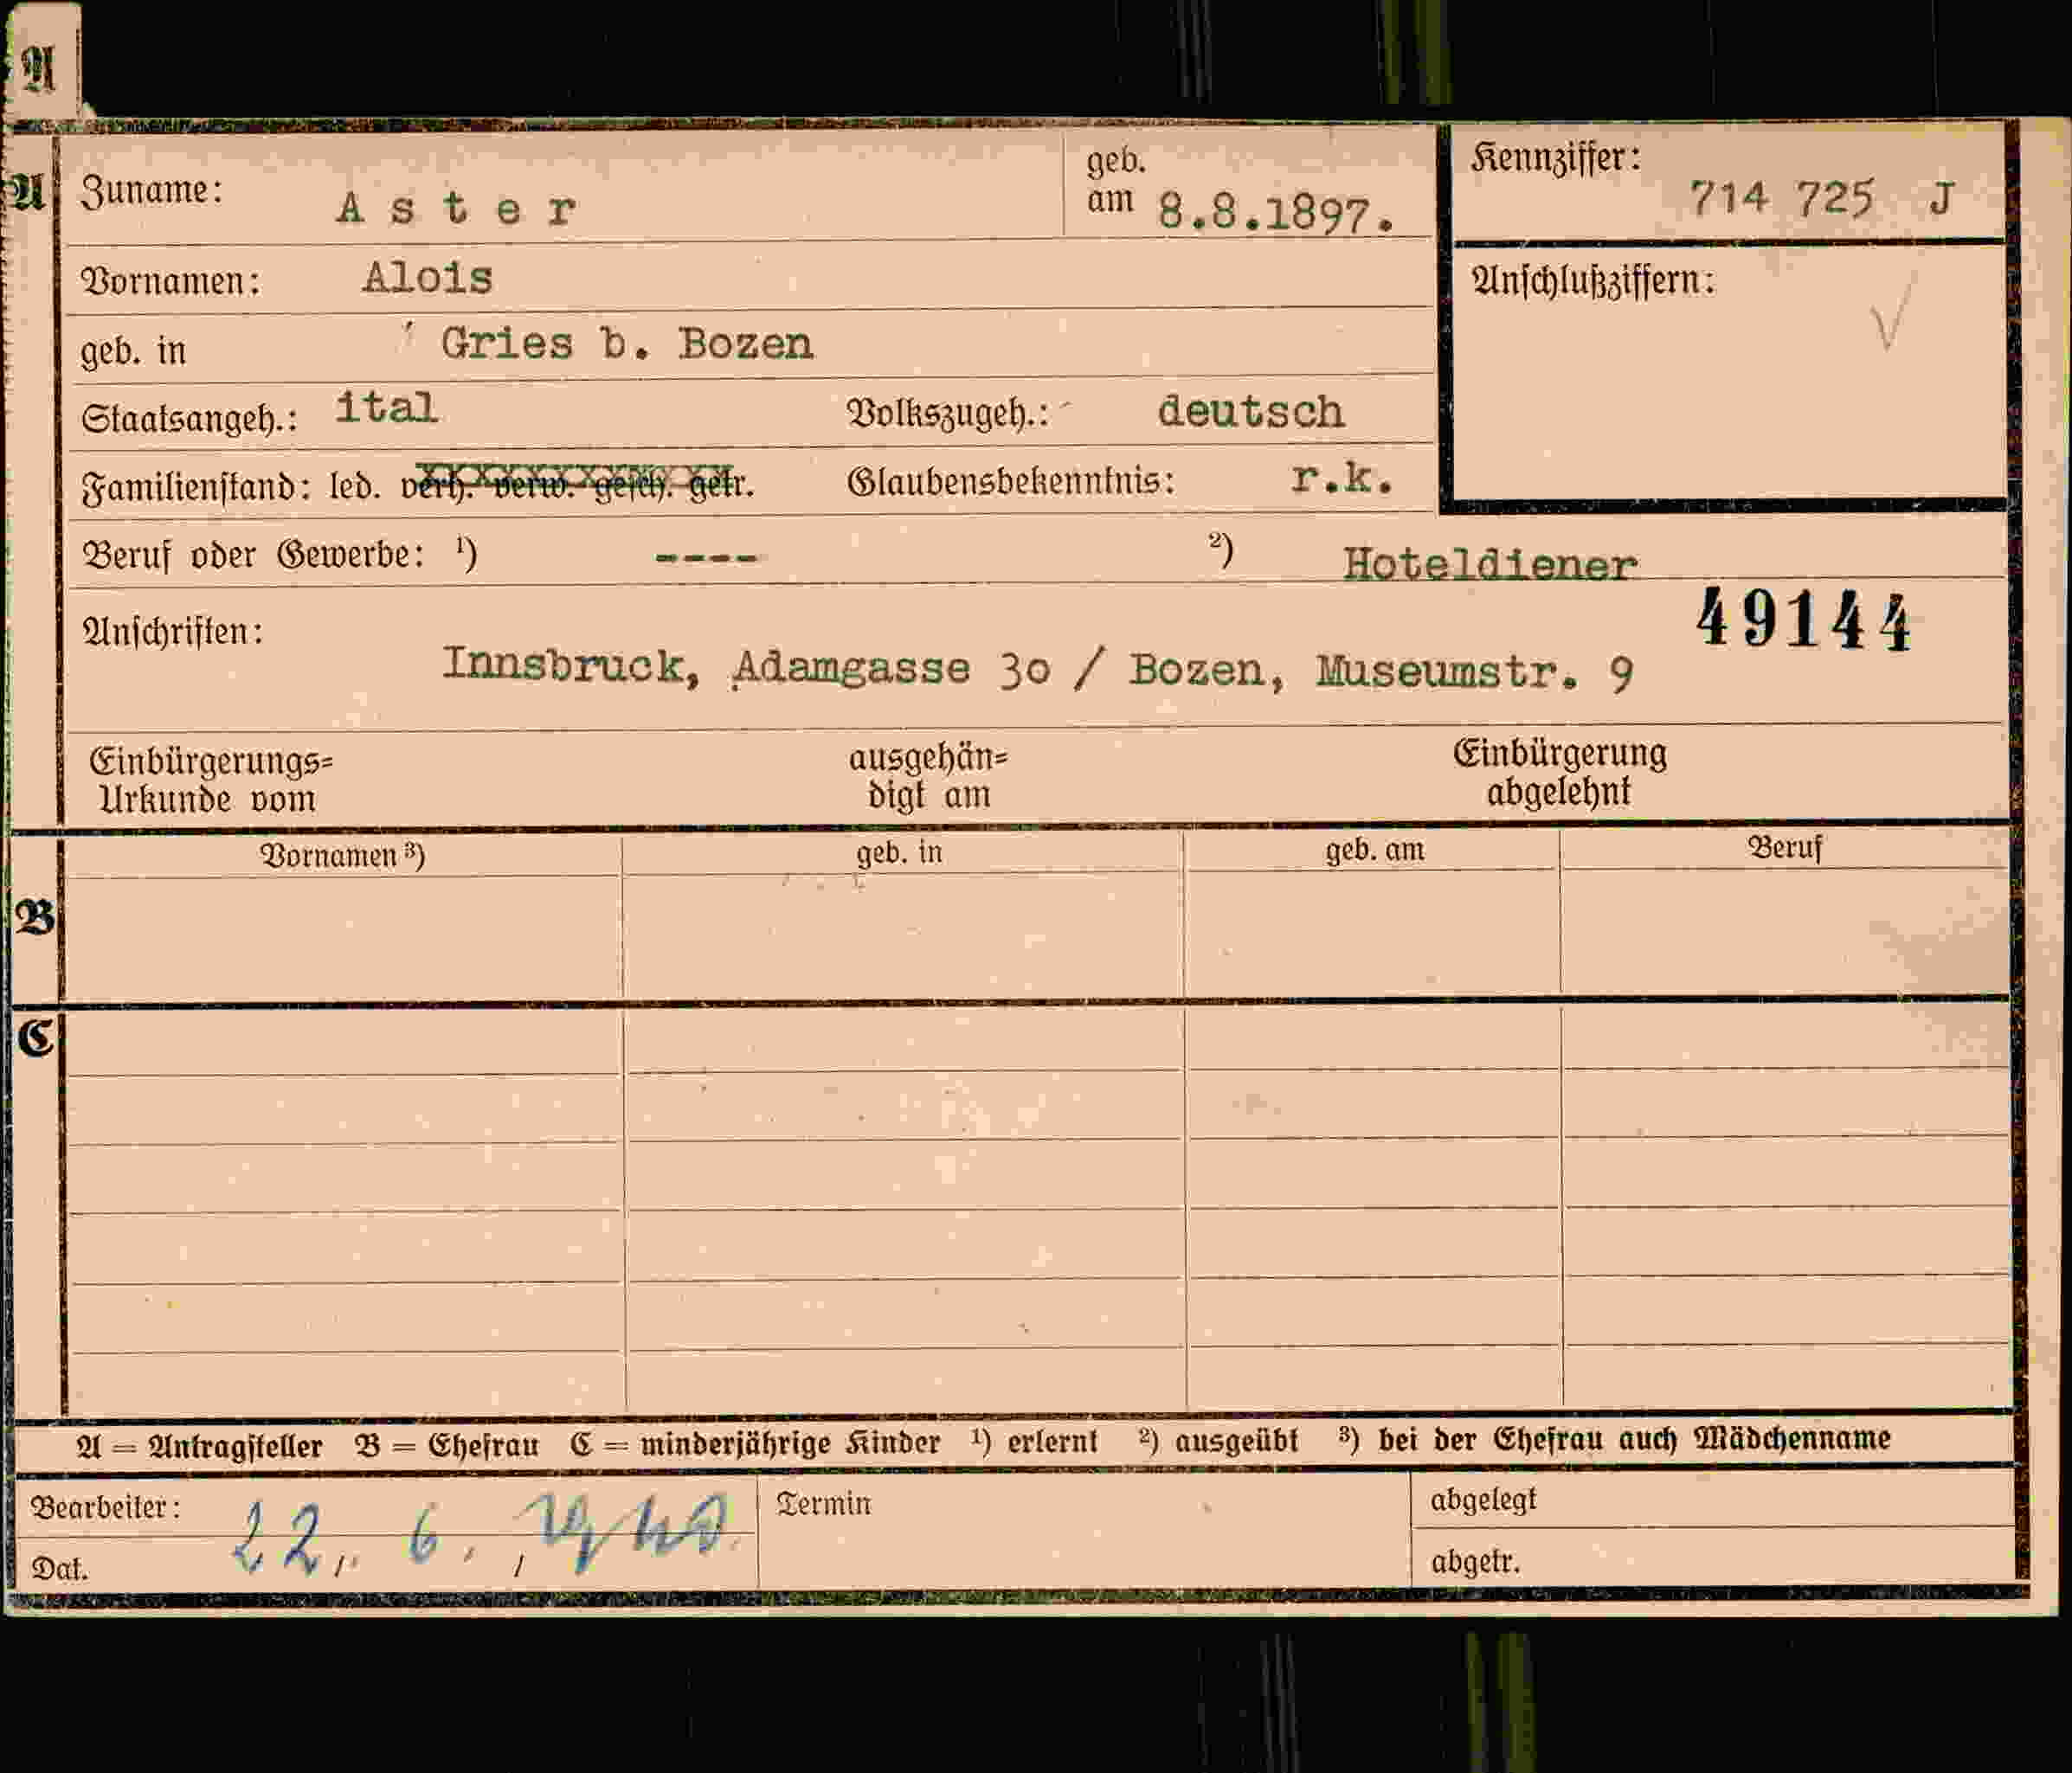 A
A
Zuname: Aster geb. am 8.8.1897. Kennziffer: 714 725 J
Vornamen: Alois Anschlußziffern: √
geb. in Gries b. Bozen
Staatsangeh.: ital Volkszugeh.: deutsch
Familienstand: led. verh. verw. gesch. getr. Glaubensbekenntnis: r.k.
Beruf oder Gewerbe: ¹) ---- ²) Hoteldiener
49144
Anschriften: Innsbruck, Adamgasse 30 / Bozen, Museumstr. 9
Einbürgerungs= ausgehän= Einbürgerung
Urkunde vom digt am abgelehnt
Vornamen ³) geb. in geb. am Beruf
B
C
A = Antragsteller B = Ehefrau C = minderjährige Kinder ¹) erlernt ²) ausgeübt ³) bei der Ehefrau auch Mädchenname
Bearbeiter: Termin abgelegt
22. 6.
Dat. abgetr.